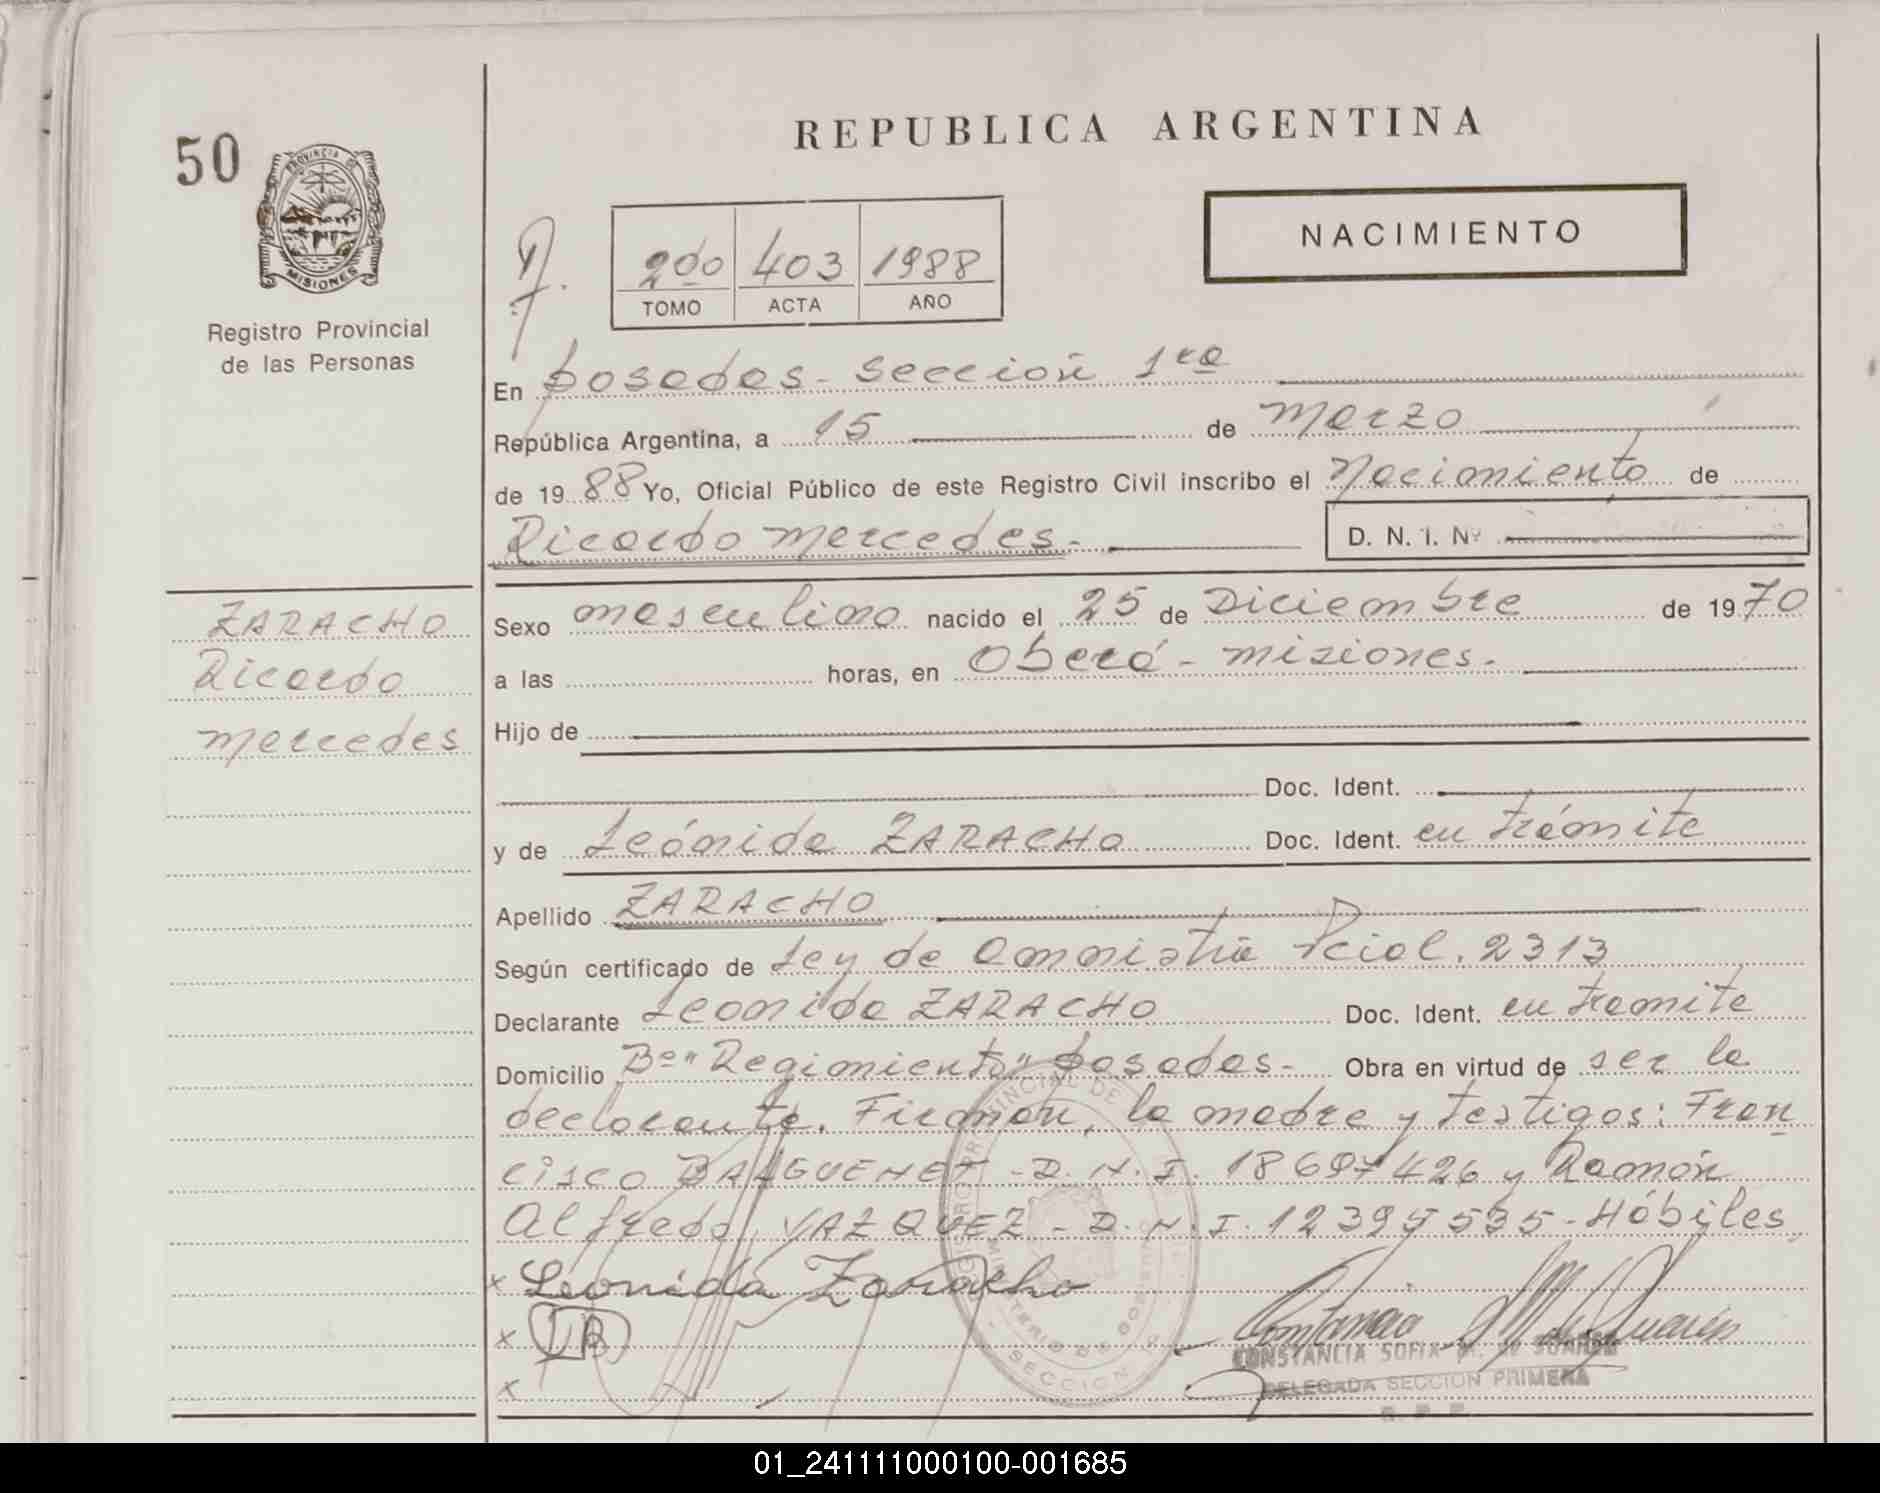 50
PROVINCIA DE
MISIONES
Registro Provincial
de las Personas
REPUBLICA ARGENTINA
NACIMIENTO
2do 403 1988
TOMO ACTA AÑO
En posadas - sección 1ra
República Argentina, a 15 de marzo
de 1988 Yo, Oficial Público de este Registro Civil inscribo el Nacimiento de
Ricardo mercedes.-
D. N. I. Nº
ZARACHO
Ricardo
mercedes
Sexo masculino nacido el 25 de Diciembre de 1970
a las horas, en Oberá - misiones.
Hijo de
Doc. Ident.
y de Leónida ZARACHO Doc. Ident. en trámite
Apellido ZARACHO
Según certificado de Ley de Amnistía Pcial. 2313
Declarante Leonida ZARACHO Doc. Ident. en tramite
Domicilio Bº "Regimiento" posadas - Obra en virtud de ser la
declarante. Firman, la madre y testigos: Fran
cisco - D.N.I. y Ramón
Alfredo VAZQUEZ - D.N.I. - Hábiles
x Leonida Zaracho
x
x
CONSTANCIA SOFIA M. de SUAREZ
DELEGADA SECCION PRIMERA
R. P. P.
01_241111000100-001685